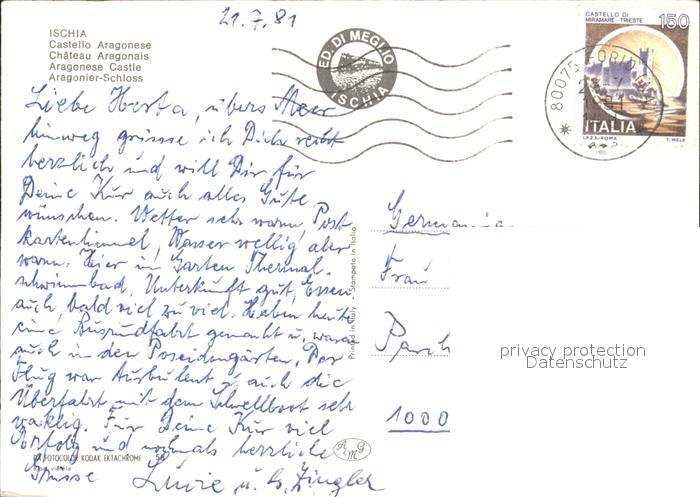 21.7.81
ISCHIA
Castello Aragonese
Château Aragonais
Aragonese Castle
Aragonier-Schloss
ED. DI MEGLIO
ISCHIA
CASTELLO DI
MIRAMARE - TRIESTE
150
ITALIA
I.P.Z.S.-ROMA
T. MELE
80075 FORIO
Liebe Herta, übers Meer
hinweg grüsse ich Dich recht
herzlich und will Dir für
Deine Kur auch alles Gute
wünschen. Wetter sehr warm, Post
kartenhimmel, Wasser wellig aber
warm. Hier im Garten Thermal-
schwimmbad, Unterkunft gut, Essen
auch, bald viel zu viel. Haben heute
eine Busrundfahrt gemacht u. waren
auch in den Poseidongärten. Der
Flug war turbulent u. auch die
Überfahrt mit dem Schnellboot sehr
wacklig. Für Deine Kur viel
Erfolg und nochmals herzliche
Grüsse Luzie u. G. Zingler
Printed in Italy - Stampato in Italia
Germania
Frau
1000
FOTOCOLOR KODAK EKTACHROME 58
AGM
privacy protection
Datenschutz